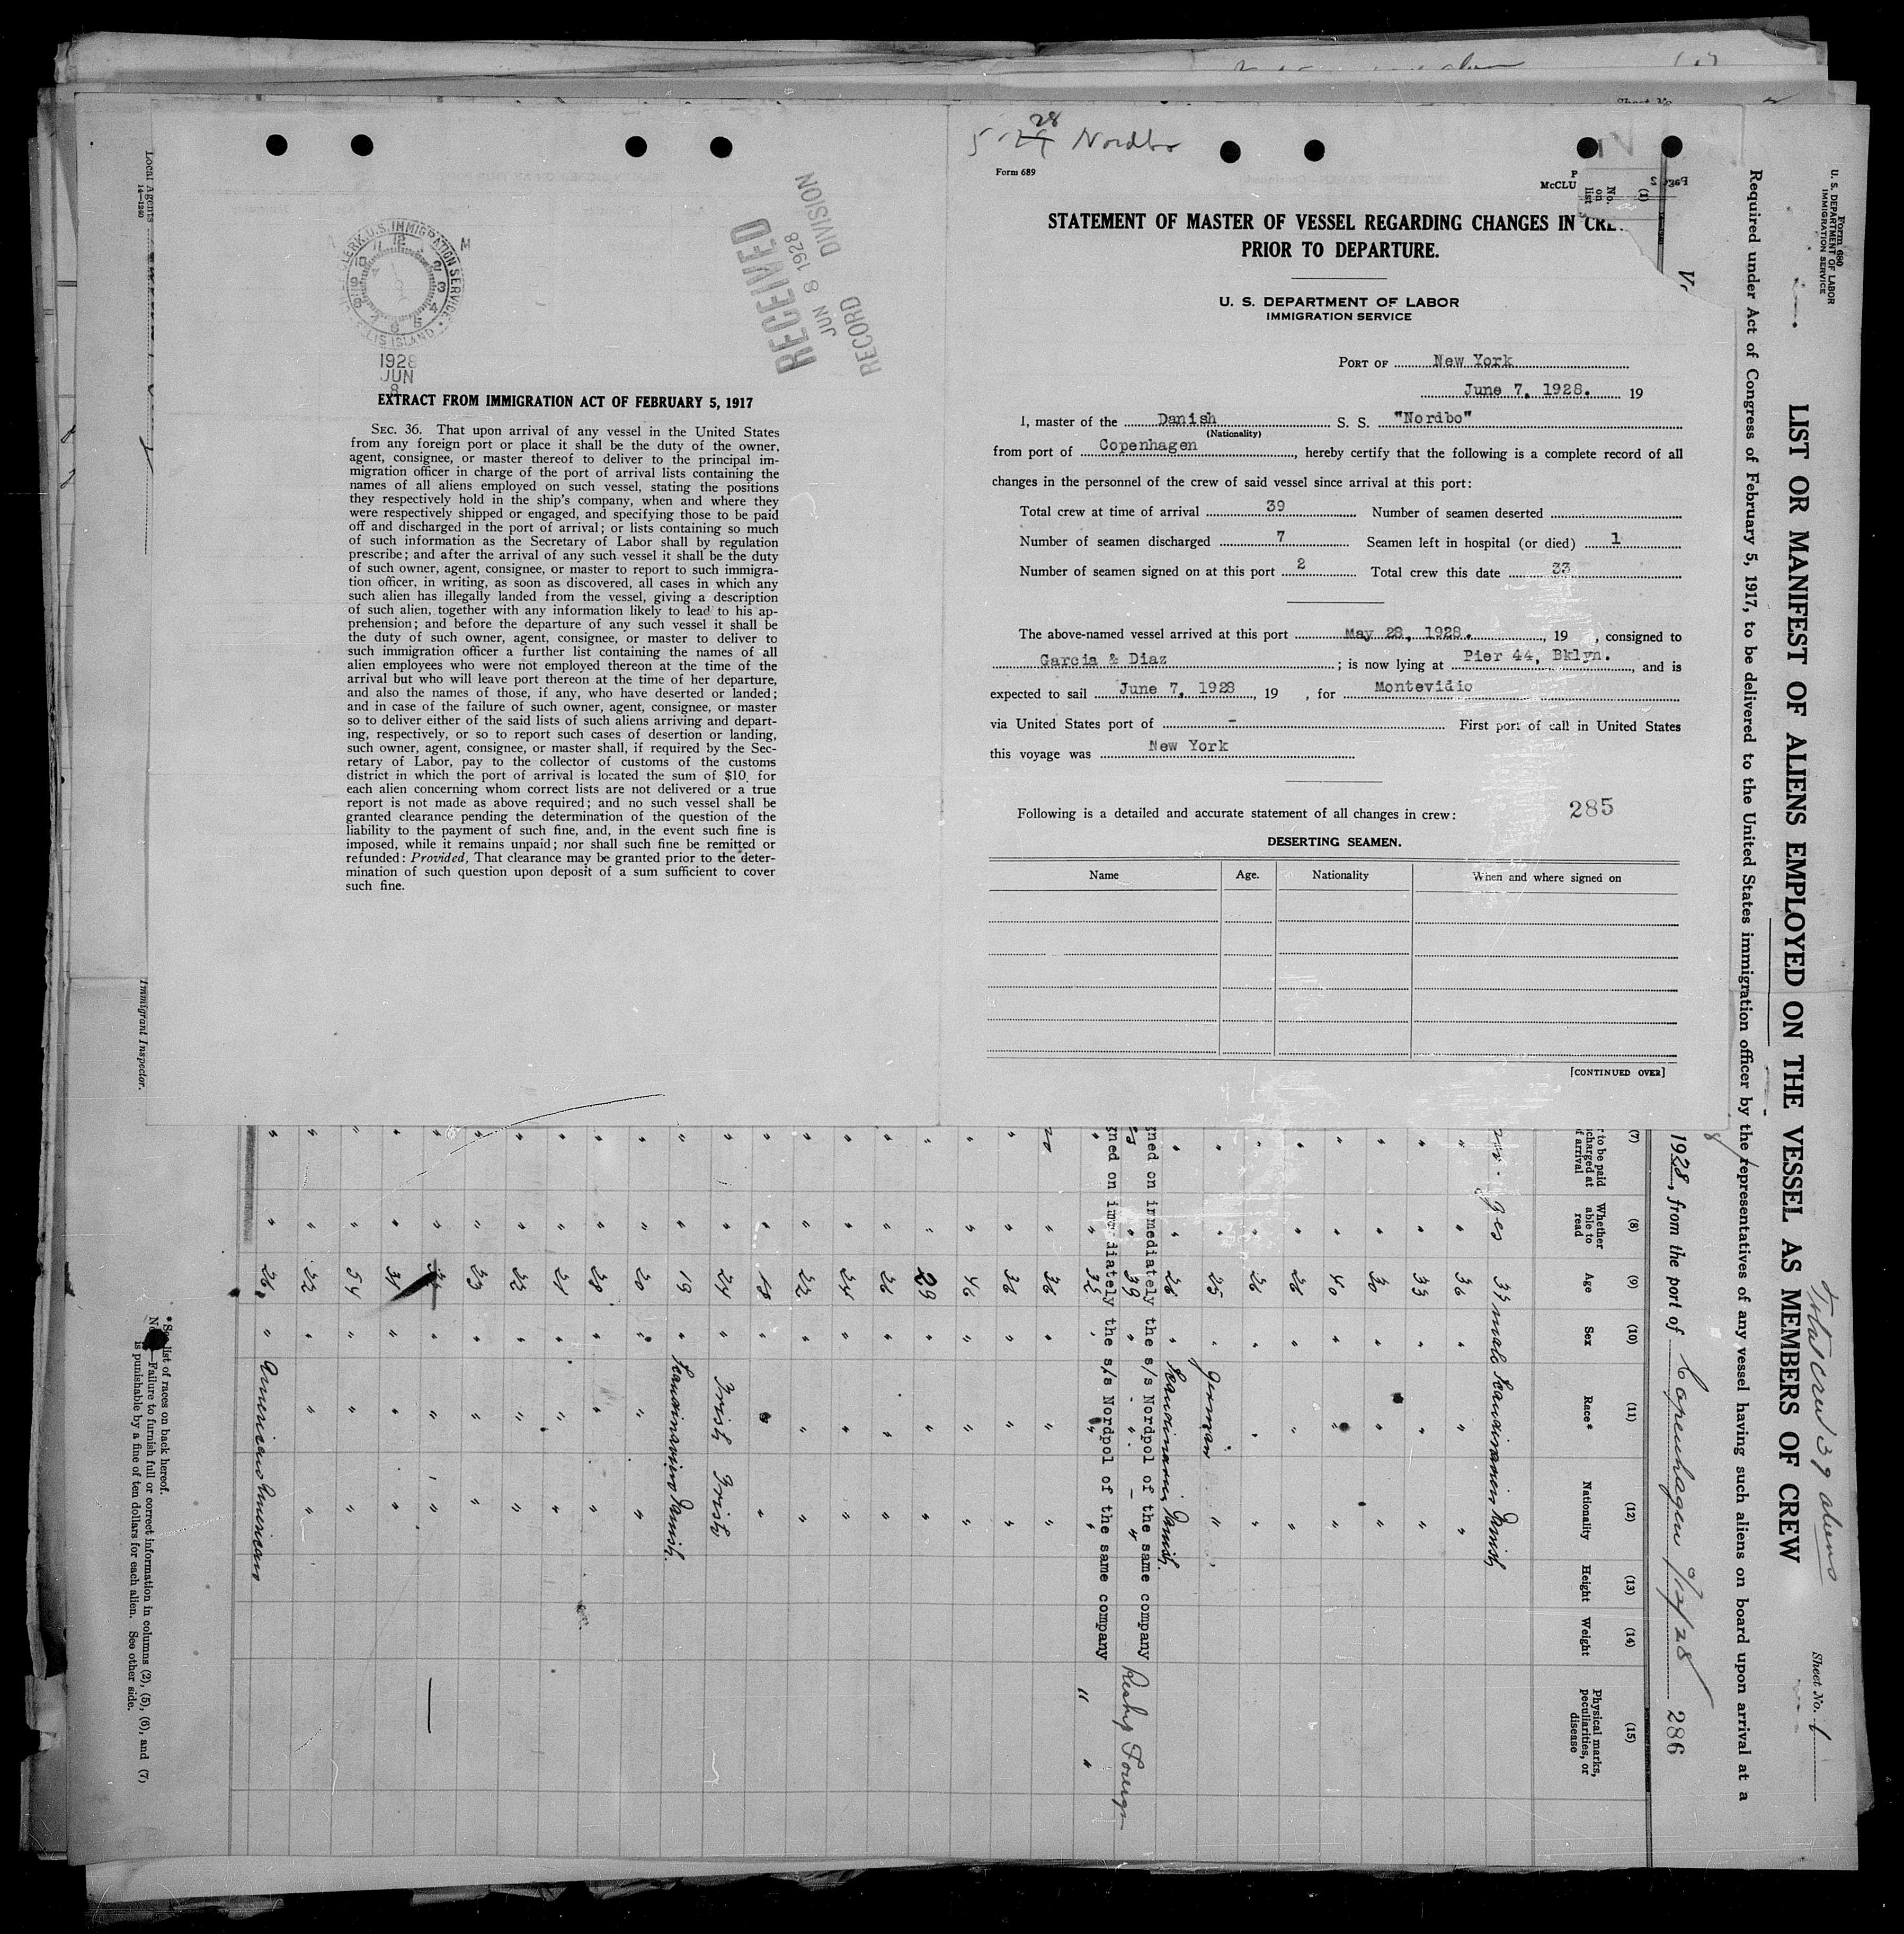 5-28 Nordbo
Form 689
McCLU
STATEMENT OF MASTER OF VESSEL REGARDING CHANGES IN CRE
PRIOR TO DEPARTURE.
U. S. DEPARTMENT OF LABOR
IMMIGRATION SERVICE
PORT OF New York
June 7, 1928. 19
I, master of the Danish S. S. "Nordbo"
(Nationality)
from port of Copenhagen, hereby certify that the following is a complete record of all
changes in the personnel of the crew of said vessel since arrival at this port:
Total crew at time of arrival 39 Number of seamen deserted
Number of seamen discharged 7 Seamen left in hospital (or died) 1
Number of seamen signed on at this port 2 Total crew this date 33
The above-named vessel arrived at this port May 28, 1928., 19 , consigned to
Garcia & Diaz ; is now lying at Pier 44, Bklyn., and is
expected to sail June 7, 1928, 19 , for Montevidio
via United States port of - First port of call in United States
this voyage was New York
Following is a detailed and accurate statement of all changes in crew: 285
DESERTING SEAMEN.
Name Age. Nationality When and where signed on
[CONTINUED OVER]
CLERK U.S. IMMIGRATION SERVICE
ELLIS ISLAND
1928
JUN
8
RECEIVED
JUN 8 1928
RECORD DIVISION
EXTRACT FROM IMMIGRATION ACT OF FEBRUARY 5, 1917
SEC. 36. That upon arrival of any vessel in the United States
from any foreign port or place it shall be the duty of the owner,
agent, consignee, or master thereof to deliver to the principal im-
migration officer in charge of the port of arrival lists containing the
names of all aliens employed on such vessel, stating the positions
they respectively hold in the ship's company, when and where they
were respectively shipped or engaged, and specifying those to be paid
off and discharged in the port of arrival; or lists containing so much
of such information as the Secretary of Labor shall by regulation
prescribe; and after the arrival of any such vessel it shall be the duty
of such owner, agent, consignee, or master to report to such immigra-
tion officer, in writing, as soon as discovered, all cases in which any
such alien has illegally landed from the vessel, giving a description
of such alien, together with any information likely to lead to his ap-
prehension; and before the departure of any such vessel it shall be
the duty of such owner, agent, consignee, or master to deliver to
such immigration officer a further list containing the names of all
alien employees who were not employed thereon at the time of the
arrival but who will leave port thereon at the time of her departure,
and also the names of those, if any, who have deserted or landed;
and in case of the failure of such owner, agent, consignee, or master
so to deliver either of the said lists of such aliens arriving and depart-
ing, respectively, or so to report such cases of desertion or landing,
such owner, agent, consignee, or master shall, if required by the Sec-
retary of Labor, pay to the collector of customs of the customs
district in which the port of arrival is located the sum of $10 for
each alien concerning whom correct lists are not delivered or a true
report is not made as above required; and no such vessel shall be
granted clearance pending the determination of the question of the
liability to the payment of such fine, and, in the event such fine is
imposed, while it remains unpaid; nor shall such fine be remitted or
refunded: Provided, That clearance may be granted prior to the deter-
mination of such question upon deposit of a sum sufficient to cover
such fine.
Form 680
U. S. DEPARTMENT OF LABOR
IMMIGRATION SERVICE
Total crew 39 aliens
Sheet No. 1
LIST OR MANIFEST OF ALIENS EMPLOYED ON THE VESSEL AS MEMBERS OF CREW
Required under Act of Congress of February 5, 1917, to be delivered to the United States immigration officer by the representatives of any vessel having such aliens on board upon arrival at a
1928, from the port of Copenhagen 286
(1) No. on list
(7) (8) (9) (10) (11) (12) (13) (14) (15)
to be paid
charged at
of arrival
Whether able to read
Age
Sex
Race*
Nationality
Height
Weight
Physical marks, peculiarities, or disease
yes 33 male Scandinavien Danish
" 36 " " "
" 33 " " "
" 30 " " "
" 40 " " "
" 26 " " "
" 26 " " "
" 25 " German "
" 26 " Scandinavien Danish
gned on immediately the s/s Nordpol of the same company
" 39 " Reship Foreign
gned on immediately the s/s Nordpol of the same company
" 32 " " "
" 36 " " "
" 36 " " "
" 46 " " "
" 29 " " "
" 26 " " "
" 24 " " "
" 22 " " "
" 18 " " "
" 24 " Irish Irish
" 19 " Scandinavien Danish
" 20 " " "
" 28 " " "
" 21 " " "
" 22 " " "
" 23 " " "
" 31 " " "
" 54 " " "
" 22 " " "
" 26 " American American
Local Agents
14-1240
Immigrant Inspector.
* See list of races on back hereof.
Failure to furnish full or correct information in columns (2), (5), (6), and (7)
is punishable by a fine of ten dollars for each alien. See other side.